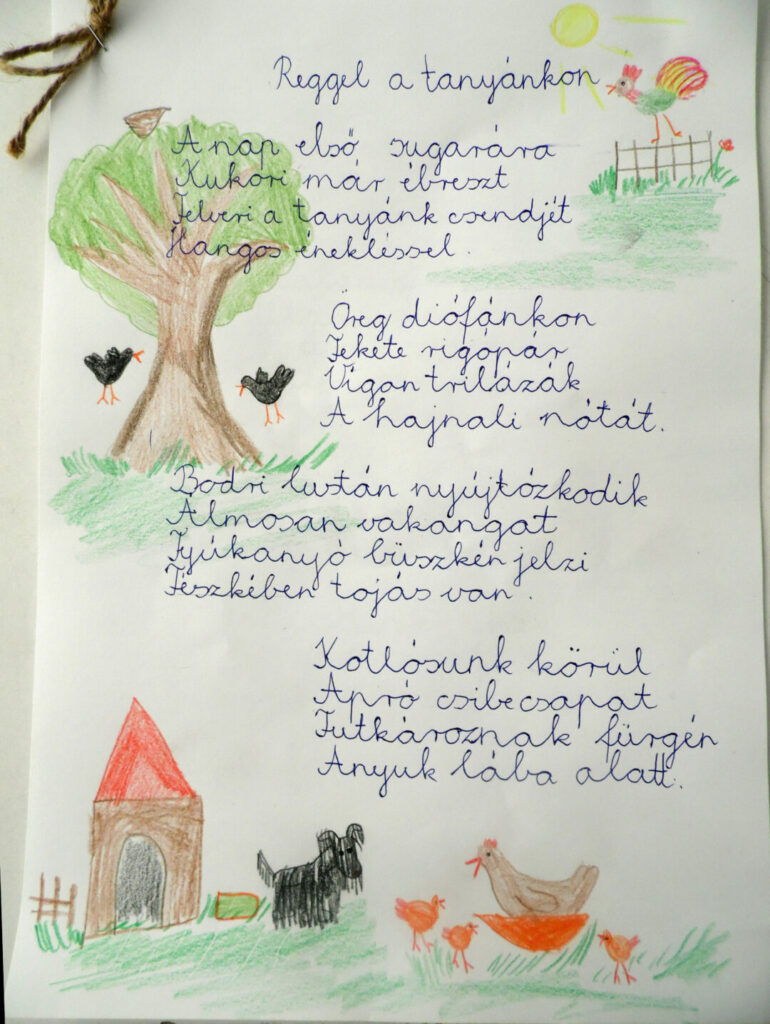 Reggel a tanyánkon
A nap első sugarára
Kukori már ébreszt
Felveri a tanyánk csendjét
Hangos énekléssel.
Öreg diófánkon
Fekete rigópár
Vígan trilázák
A hajnali nótát.
Bodri lustán nyújtózkodik
Álmosan vakangat
Tyúkanyó büszkén jelzi
Fészkében tojás van.
Kotlósunk körül
Apró csibecsapat
Futkároznak fürgén
Anyuk lába alatt.